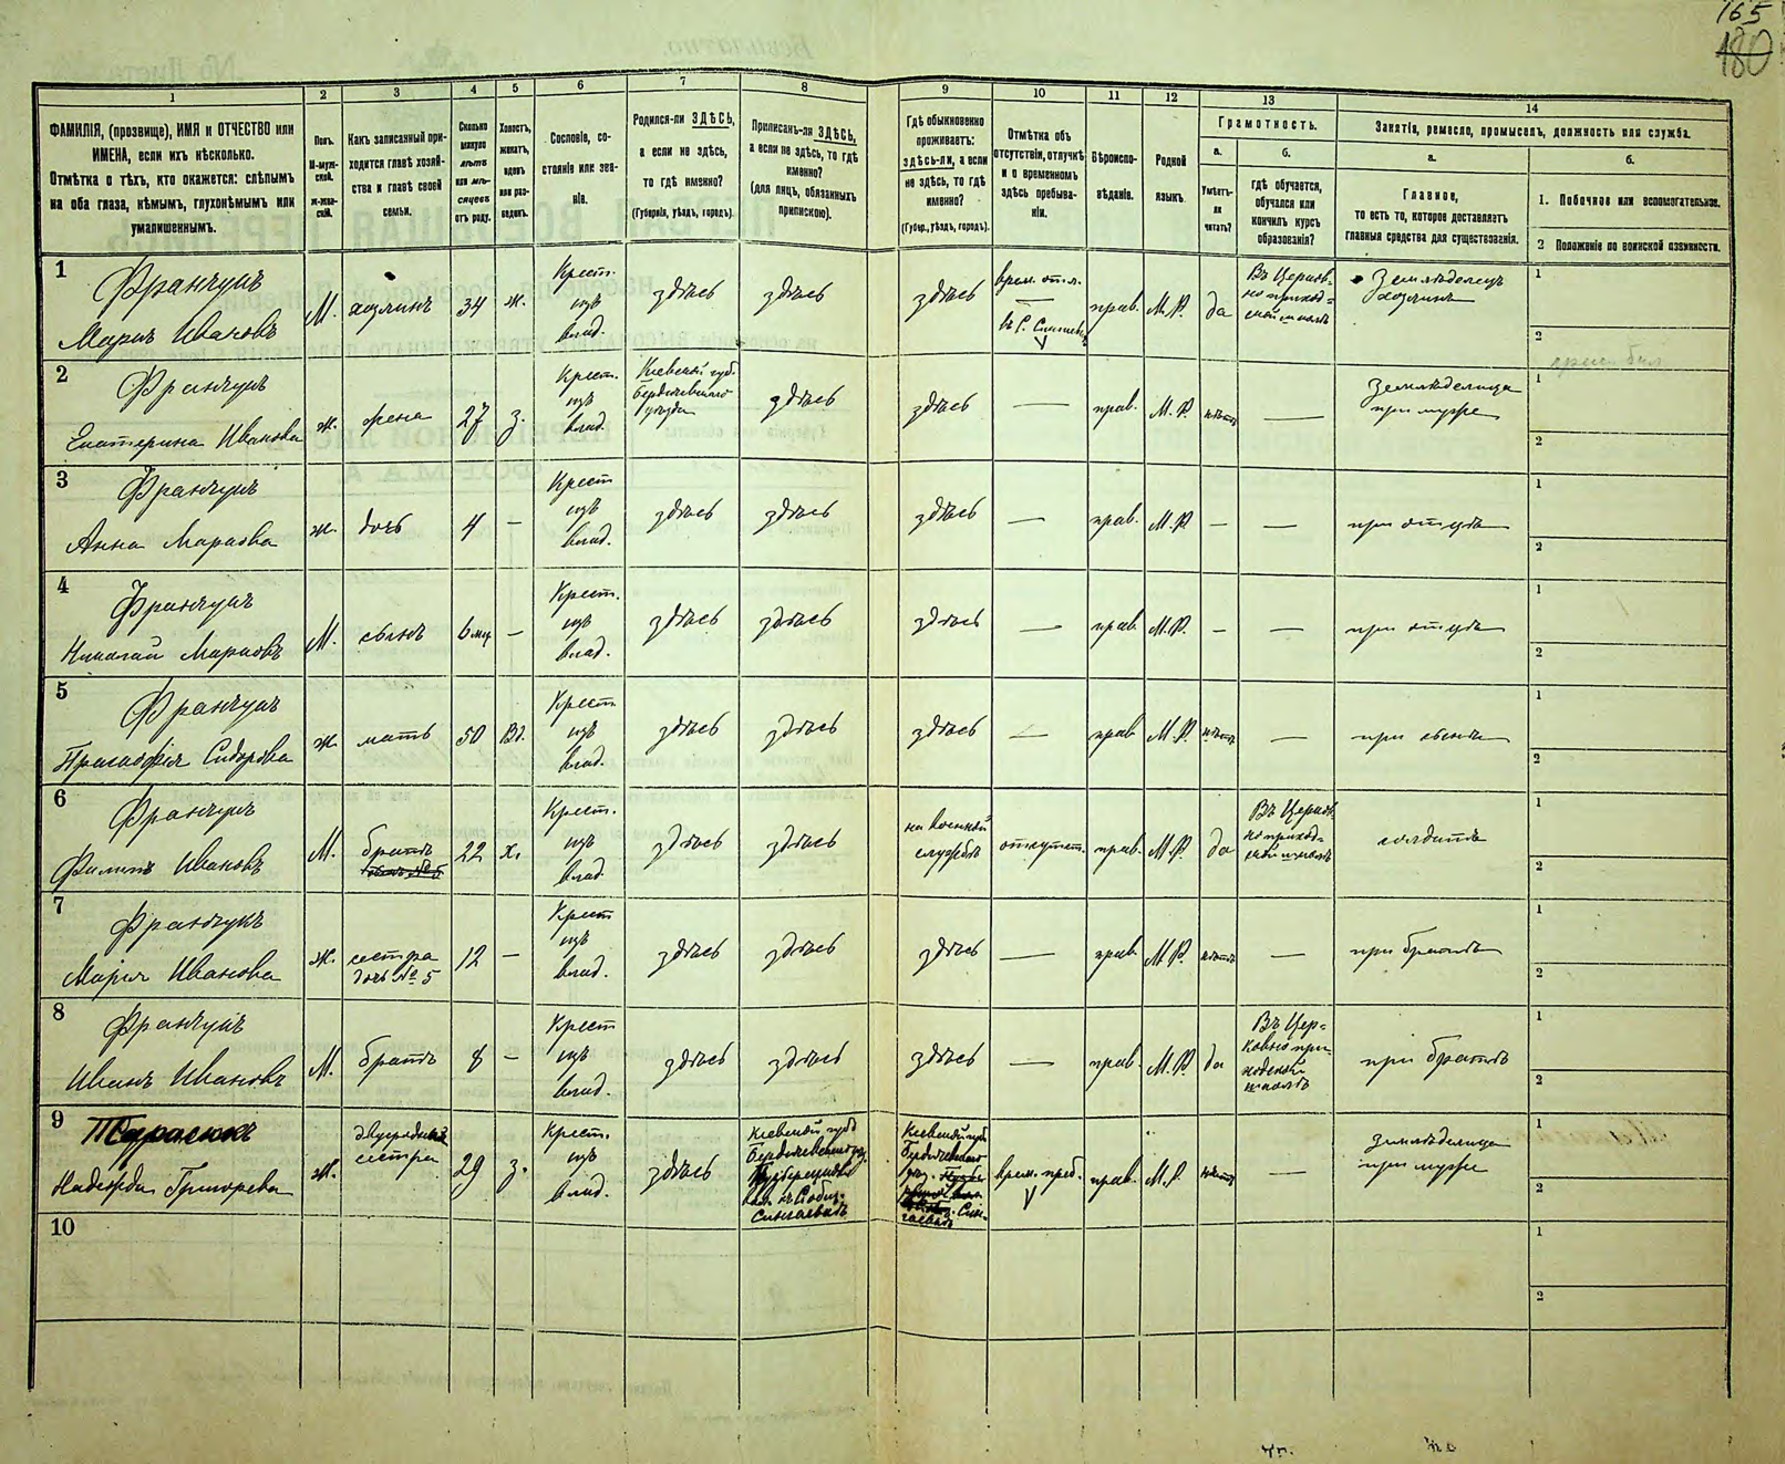 165
180
1 2 3 4 5 6 7 8 9 10 11 12 13 14
ФАМИЛІЯ, (прозвище), ИМЯ и ОТЧЕСТВО или
ИМЕНА, если ихъ нѣсколько.
Отмѣтка о тѣхъ, кто окажется: слѣпымъ
на оба глаза, нѣмымъ, глухонѣмымъ или
умалишеннымъ.
Полъ.
М-муж-
ской.
Ж-жен-
скій.
Какъ записанный при-
ходится главѣ хозяй-
ства и главѣ своей
семьи.
Сколько
минуло
лѣтъ
или мѣ-
сяцевъ
отъ роду.
Холостъ,
женатъ,
вдовъ
или раз-
веденъ.
Сословіе, со-
стояніе или зва-
ніе.
Родился-ли ЗДѢСЬ,
а если не здѣсь,
то гдѣ именно?
(Губернія, уѣздъ, городъ).
Приписанъ-ли ЗДѢСЬ,
а если не здѣсь, то гдѣ
именно?
(для лицъ, обязанныхъ
припискою).
Гдѣ обыкновенно
проживаетъ:
здѣсь-ли, а если
не здѣсь, то гдѣ
именно?
(Губер., уѣздъ, городъ).
Отмѣтка объ
отсутствіи, отлучкѣ
и о временномъ
здѣсь пребыва-
ніи.
Вѣроиспо-
вѣданіе.
Родной
языкъ.
Грамотность.
а.
Умѣетъ-
ли
читать?
б.
гдѣ обучается,
обучался или
кончилъ курсъ
образованія?
Занятіе, ремесло, промыселъ, должность или служба.
а.
Главное,
то есть то, которое доставляетъ
главныя средства для существованія.
б.
1. Побочное или вспомогательное.
2 Положеніе по воинской повинности.
1
Франчукъ
Маркъ Ивановъ
М. хозяинъ 34 ж.
Крест.
изъ
влад.
здѣсь здѣсь здѣсь
врем. отл.
прав. М.Р. да
Въ Церков-
но приход-
ской школѣ
Земледѣлецъ
хозяинъ
1
2
2
Франчукъ
Екатерина Иванова
ж. жена 27 з.
Крест.
изъ
влад.
Кіевской губ.
Бердичевскаго
уѣзда
здѣсь здѣсь — прав. М.Р. нѣтъ —
Земледѣлица
при мужѣ
1
2
3
Франчукъ
Анна Маркова
ж. дочь 4 —
Крест
изъ
влад.
здѣсь здѣсь здѣсь — прав. М.Р — — при отцѣ
1
2
4
Франчукъ
Николай Марковъ
М. сынъ 6 мц —
Крест.
изъ
влад.
здѣсь здѣсь здѣсь — прав. М.Р. — — при отцѣ
1
2
5
Франчукъ
Праскофія Сидорова
ж. мать 50 вд.
Крест
изъ
влад.
здѣсь здѣсь здѣсь — прав М.Р. нѣтъ — при сынѣ
1
2
6
Франчукъ
Филипъ Ивановъ
М. братъ 22 х.
Крест.
изъ
влад.
здѣсь здѣсь
на военной
службѣ
отсутст. прав. М.Р. да
Въ Церков
но приход-
ской школѣ
солдатъ
1
2
7
Франчукъ
Марія Иванова
ж. сестра
дочь № 5
12 —
Крест
изъ
влад.
здѣсь здѣсь здѣсь — прав М.Р. нѣтъ — при братѣ
1
2
8
Франчукъ
Иванъ Ивановъ
М. братъ 8 —
Крест
изъ
влад.
здѣсь здѣсь здѣсь — прав. М.Р. да
Въ Цер-
ковно при-
ходской
школѣ
при братѣ
1
2
9
Тарасюкъ
Надежда Григорьева
ж. двуродная
сестра
29 з.
Крест.
изъ
влад.
здѣсь
Кіевской губ
Бердичевскаго уѣз.
Сингаевкѣ
Кіевской губ
Бердичевскаго
уѣз.
Син-
гаевкѣ
врем. преб. прав. М.Р. нѣтъ —
земледѣлица
при мужѣ
1
2
10
1
2